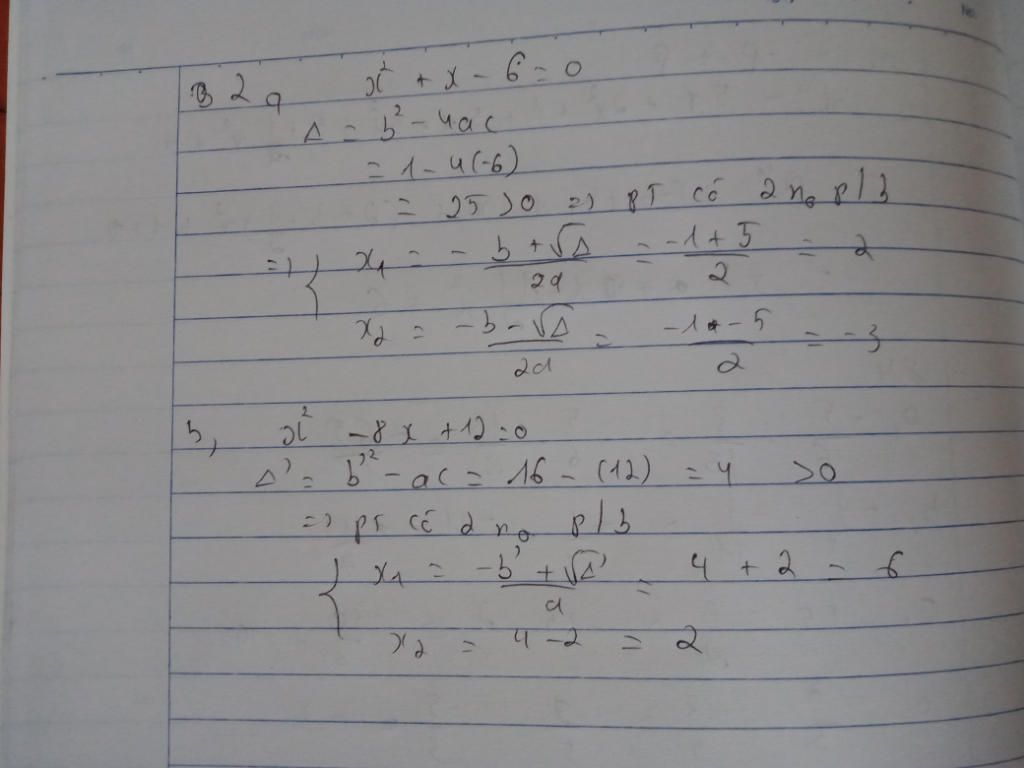 B2a x² + x - 6 = 0
Δ = b² - 4ac
= 1 - 4(-6)
= 25 > 0 => pt có 2 no p/b
=> { x₁ = - b + √Δ / 2a = -1 + 5 / 2 = 2
x₂ = -b - √Δ / 2a = -1 - 5 / 2 = -3
b, x² - 8x + 12 = 0
Δ' = b'² - ac = 16 - (12) = 4 > 0
=> pt có 2 no p/b
{ x₁ = -b' + √Δ' / a = 4 + 2 = 6
x₂ = 4 - 2 = 2